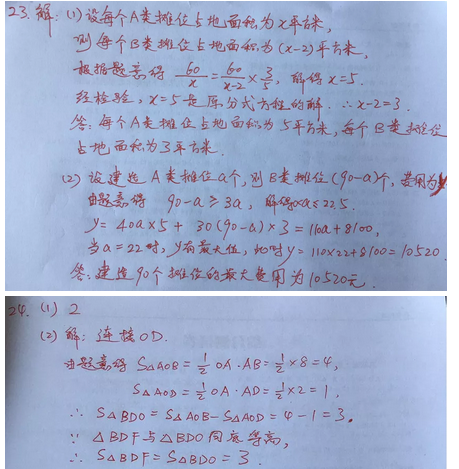 23.解：(1)设每个A类摊位占地面积为x平方米，
则每个B类摊位占地面积为(x-2)平方米，
根据题意得 60/x = 60/(x-2) × 3/5，解得x=5.
经检验，x=5是原分式方程的解. ∴x-2=3.
答：每个A类摊位占地面积为5平方米，每个B类摊位
占地面积为3平方米.
(2)设建造A类摊位a个，则B类摊位(90-a)个，费用为y
由题意得 90-a≥3a，解得0<a≤22.5.
y=40a×5+30(90-a)×3=110a+8100，
当a=22时，y有最大值，此时y=110×22+8100=10520.
答：建造90个摊位的最大费用为10520元.
24.(1) 2
(2)解：连接OD.
由题意得 S△AOB=1/2 OA·AB=1/2×8=4，
S△AOD=1/2 OA·AD=1/2×2=1，
∴ S△BDO=S△AOB-S△AOD=4-1=3，
∵ △BDF与△BDO同底等高，
∴ S△BDF=S△BDO=3.